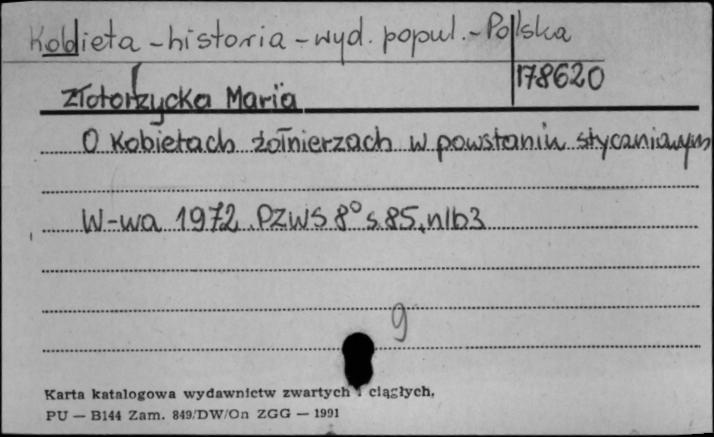 Kobieta - historia - wyd. popul. - Polska
178620
Złotorzycka Maria
O kobietach żołnierzach w powstaniu styczniowym
W-wa 1972. PZWS 8° s. 85, nlb 3
9
Karta katalogowa wydawnictw zwartych i ciągłych.
PU — B144 Zam. 849/DW/On ZGG — 1991